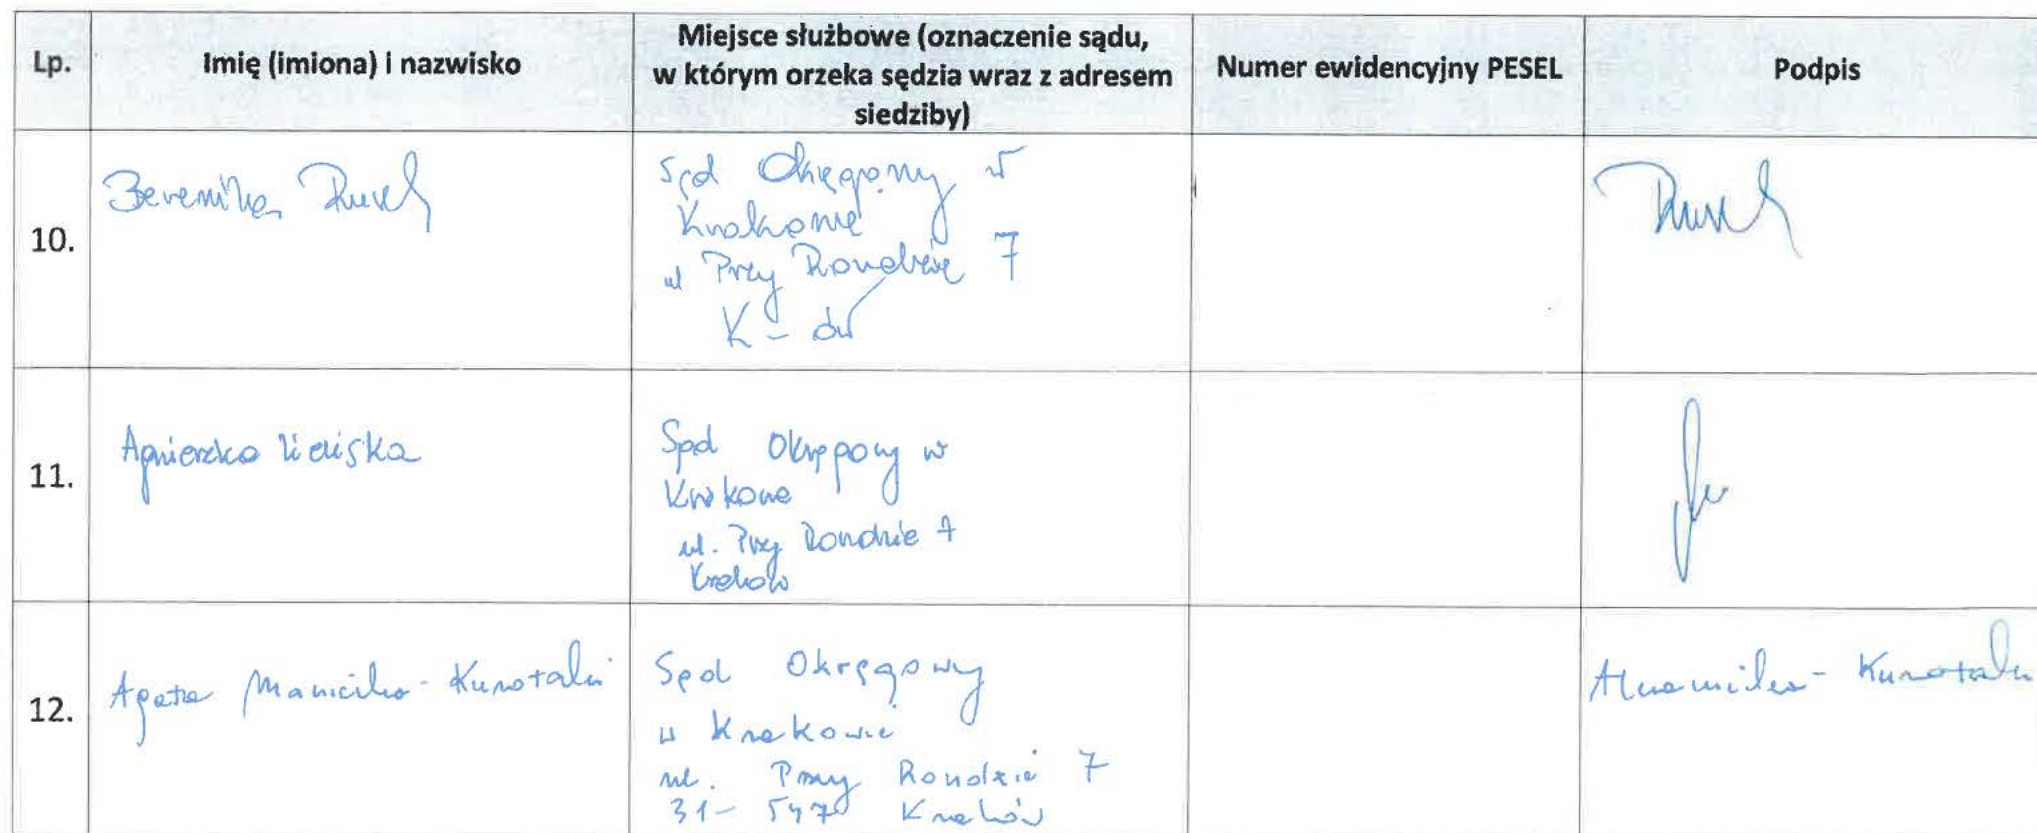 Lp.
Imię (imiona) i nazwisko
Miejsce służbowe (oznaczenie sądu,
w którym orzeka sędzia wraz z adresem
siedziby)
Numer ewidencyjny PESEL
Podpis
10.
Berenika
Sąd Okręgowy w
Krakowie
ul Przy Rondzie 7
K-ów
11.
Agnieszka
Sąd Okręgowy w
Krakowie
ul. Przy Rondzie 7
Kraków
12.
Agata
Sąd Okręgowy
w Krakowie
ul. Przy Rondzie 7
31-547 Kraków